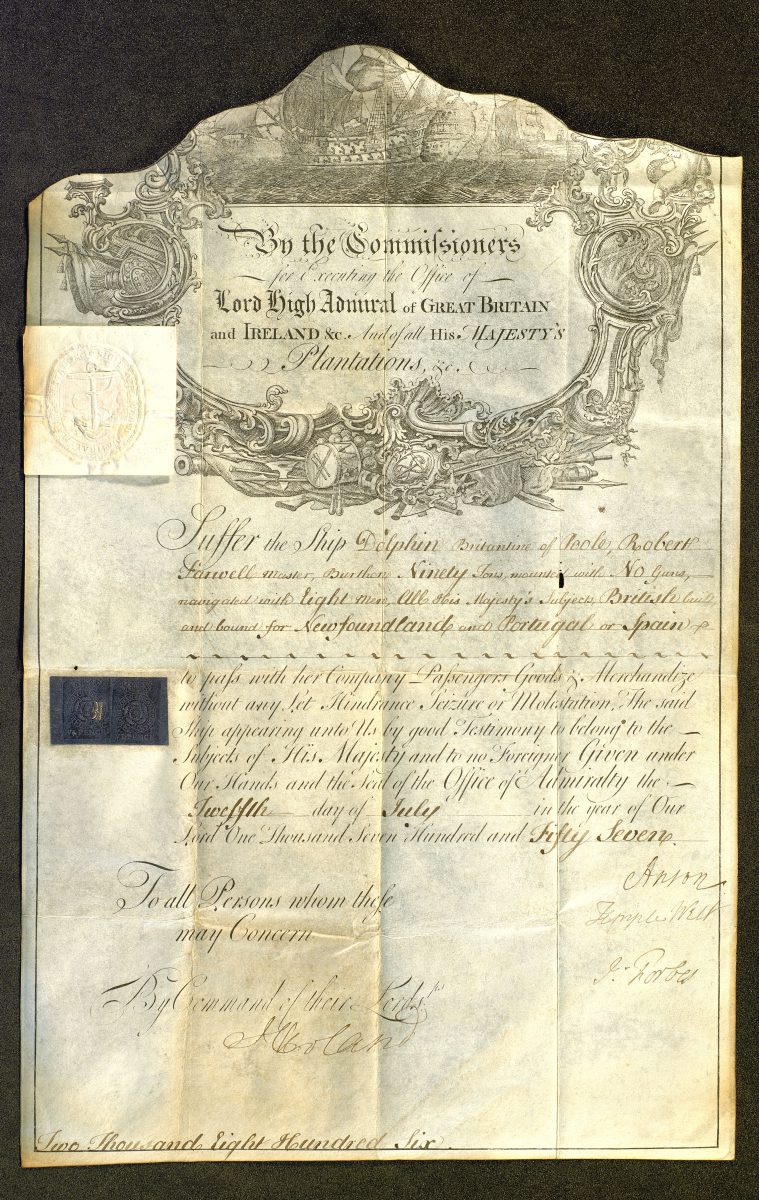 By the Commissioners
for Executing the Office of
Lord High Admiral of GREAT BRITAIN
and IRELAND &c. And of all His MAJESTY'S
Plantations, &c.
Suffer the Ship Dolphin Britantine of Poole, Robert
Farwell Master, Burthen Ninety Tons, mounted with No Guns,
navigated with Eight Men, All His Majesty's Subjects, British built
and bound for Newfoundland and Portugal or Spain
to pass with her Company Passengers Goods & Merchandize
without any Let Hindrance Seizure or Molestation, The said
Ship appearing unto Us by good Testimony to belong to the
Subjects of His Majesty and to no Foreigner Given under
Our Hands and the Seal of the Office of Admiralty the
Twelfth day of July in the year of Our
Lord One Thousand Seven Hundred and Fifty Seven.
Anson
Temple West
To all Persons whom these
may Concern
Js. Forbes
By Command of their Lordsps
Two Thousand Eight Hundred Six.